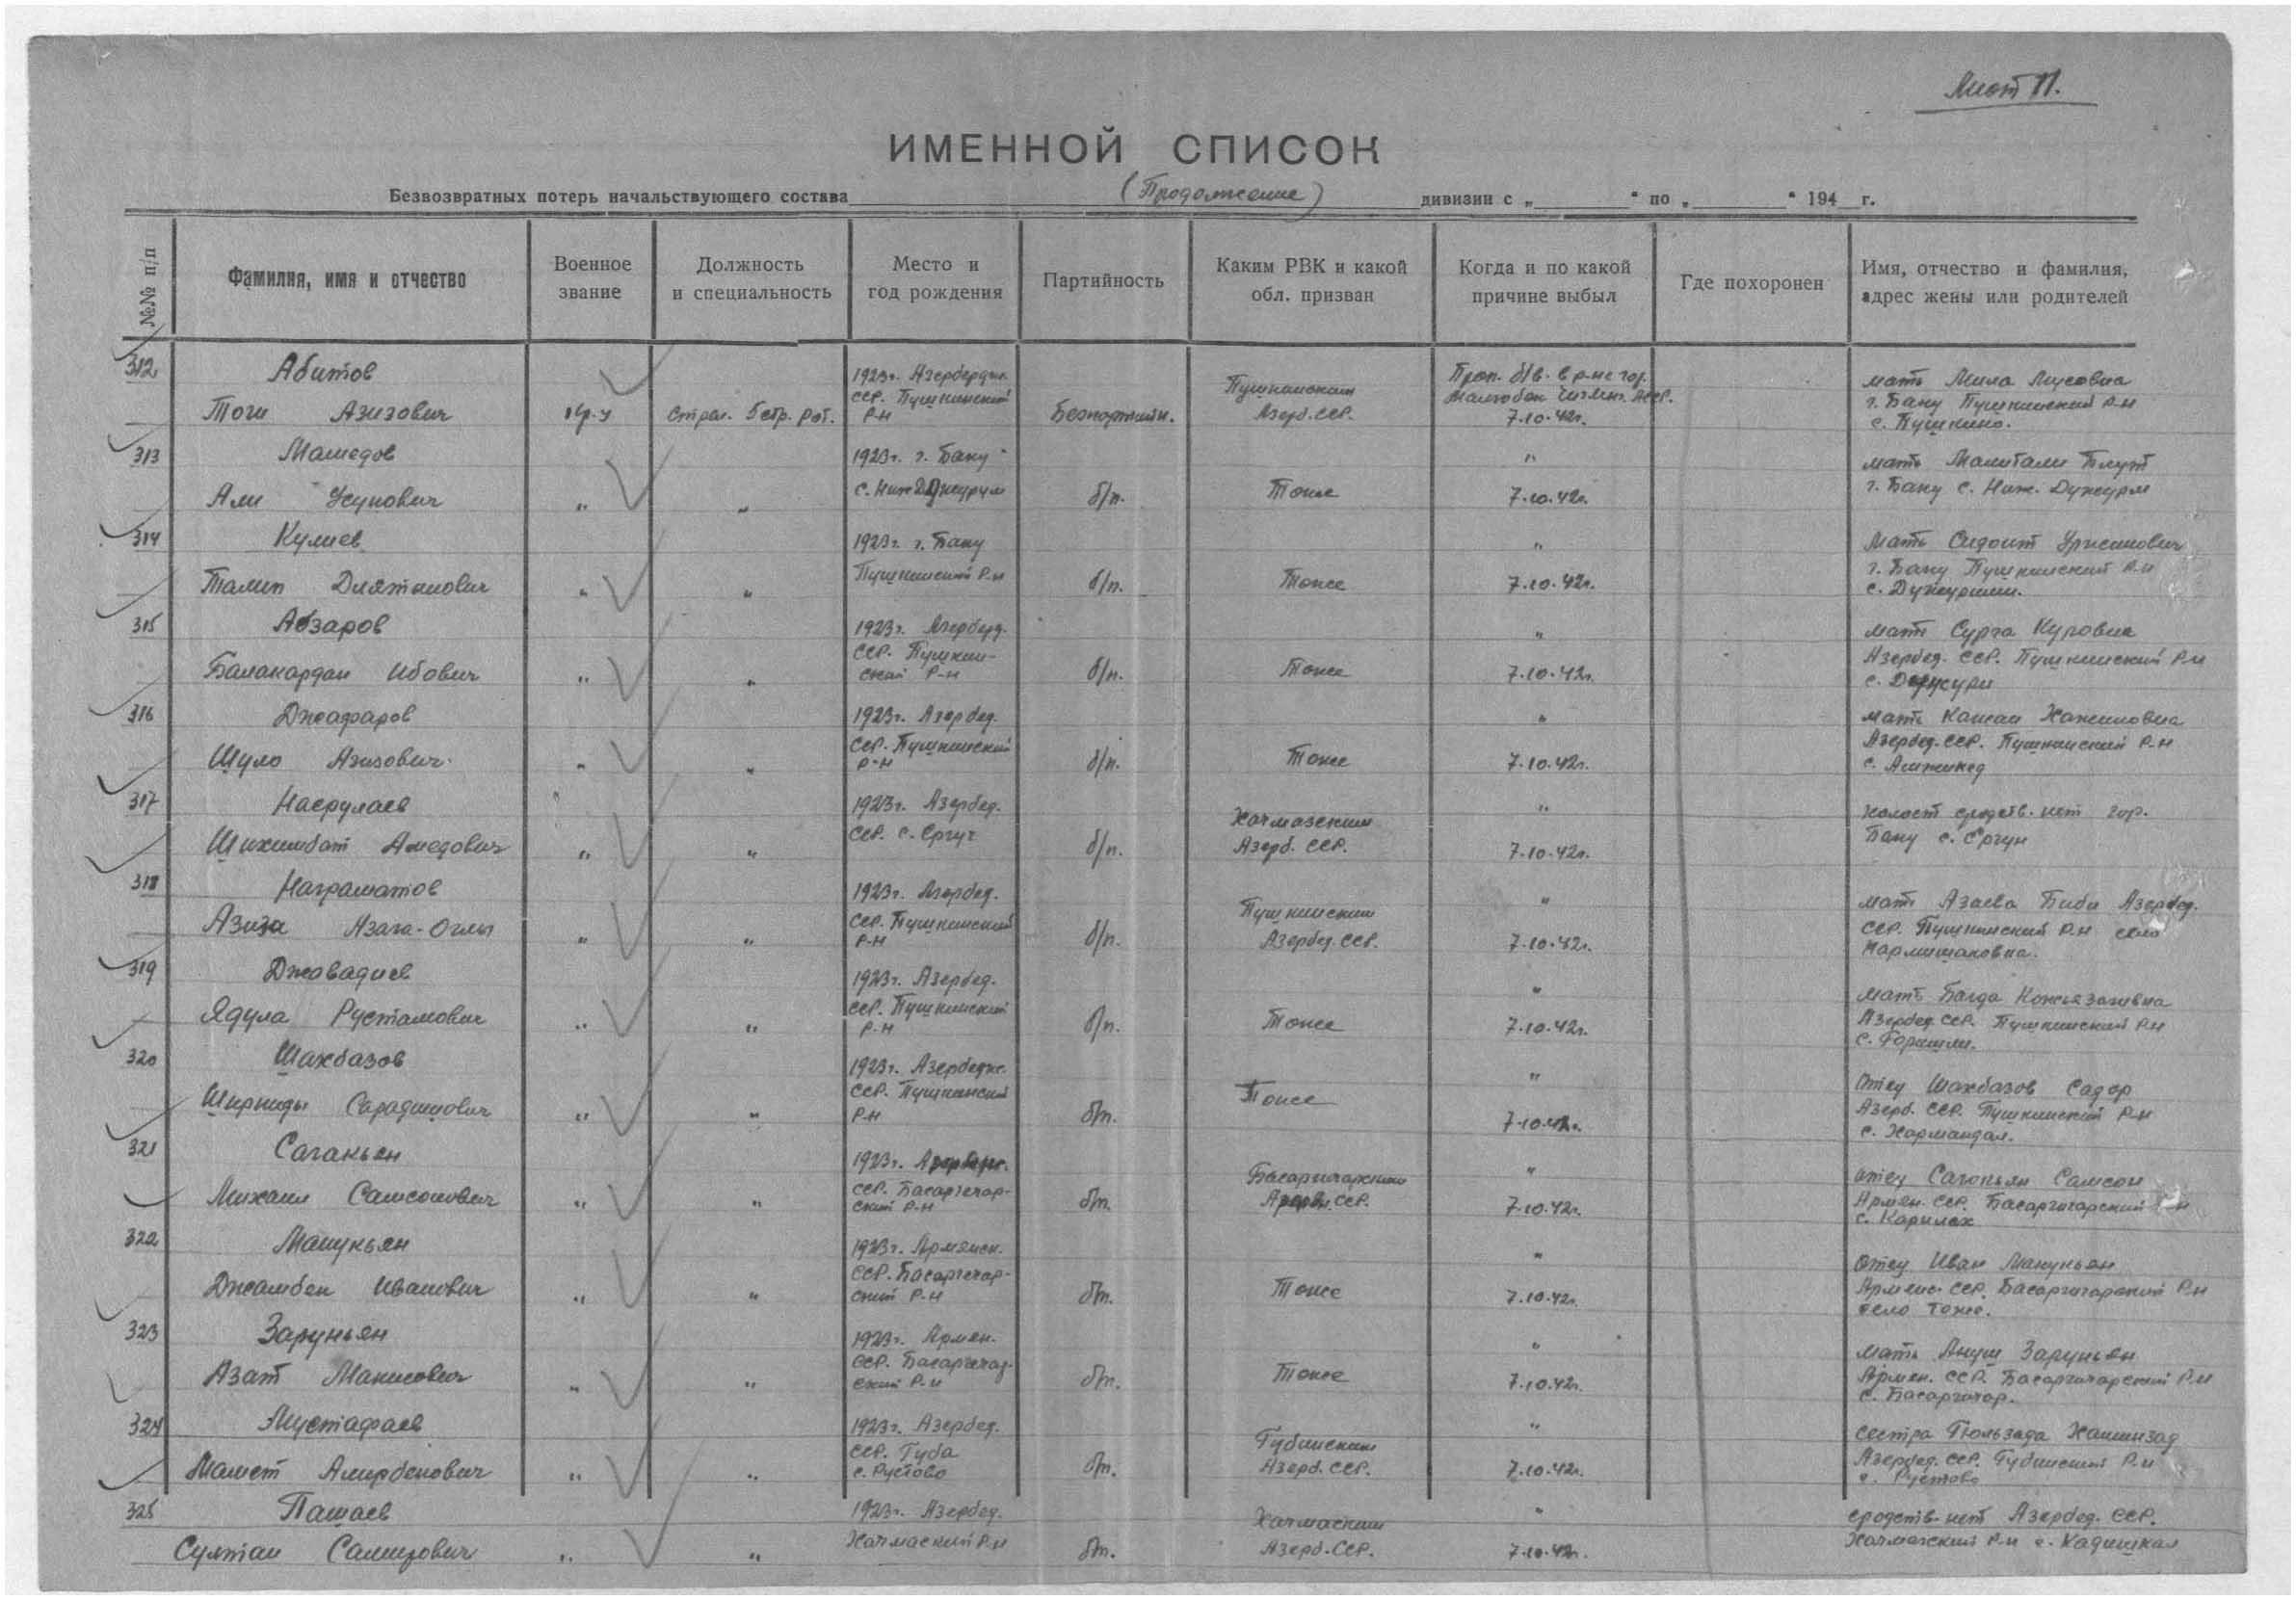 Лист 11.
ИМЕННОЙ СПИСОК
Безвозвратных потерь начальствующего состава (Продолжение) дивизии с „ " по „ " 194 г.
№№ п/п
Фамилия, имя и отчество
Военное звание
Должность и специальность
Место и год рождения
Партийность
Каким РВК и какой обл. призван
Когда и по какой причине выбыл
Где похоронен
Имя, отчество и фамилия, адрес жены или родителей
312 Абитов 1923г. Пушкинским Проп. б/в. в р-не гор. мать
Тоги Азизович кр-ц стрел. 5 стр. рот. ССР. Пушкинский Р-Н Беспартийн. Азерб. ССР. Малгобек 7-10-42г. г. Баку Пушкинский Р-Н
с. Пушкино.
313 Мамедов 1923г. г. Баку " мать
Али Усупович " " с. Ниж. б/п. Тоже 7-10-42г. г. Баку с. Ниж.
314 Кулиев 1923г. г. Баку " Мать
Талип " " Пушкинский Р-Н б/п. Тоже 7-10-42г. г. Баку Пушкинский Р-Н
315 Абзаров 1923г. Азербед. " мать Сурга Куровна
Балакардаш Ибович " " ССР. Пушкин- ский Р-Н б/п. Тоже 7-10-42г. Азербед. ССР. Пушкинский Р-Н
316 Джафаров 1923г. Азербед. " мать
Шуло Азизович " " ССР. Пушкинский Р-Н б/п. Тоже 7-10-42г. Азербед. ССР. Пушкинский Р-Н
317 Насрулаев 1923г. Азербед. Хачмазским " холост сродств. нет гор.
Шихимбат Амедович " " ССР. с. Ергуч б/п. Азерб. ССР. 7-10-42г. Баку с.
318 Награматов 1923г. Азербед. Пушкинским " мать Азаева Биби Азербед.
Азиза Азага-Оглы " " ССР. Пушкинский Р-Н б/п. Азербед. ССР. 7-10-42г. ССР. Пушкинский Р-Н село
319 Джавадиев 1923г. Азербед. " мать Багда
Ядула Рустамович " " ССР. Пушкинский Р-Н б/п. Тоже 7-10-42г. Азербед. ССР. Пушкинский Р-Н
320 Шахбазов 1923г. Азербедж. Тоже " отец Шахбазов Садор
" " ССР. Пушкинский Р-Н б/п. 7-10-42г. Азерб. ССР. Пушкинский Р-Н
с. Хармандал.
321 Саганьян 1923г. Басаргичарским " отец Саганьян Самсон
Михаил Самсонович " " ССР. Басаргечар- ский Р-Н б/п. ССР. 7-10-42г. Армян. ССР. Басаргичарский Р-Н
322 Манукьян 1923г. Армянск. " отец Иван Манукьян
Джамбек Иванович " " ССР. Басаргечар- ский Р-Н б/п. Тоже 7-10-42г. ССР. Басаргичарский Р-Н
село тоже.
323 Заруньян 1923г. Армян. " мать Ануш Заруньян
Азат Манисович " " ССР. Басаргечар- ский Р-Н б/п. Тоже 7-10-42г. Армян. ССР. Басаргичарский Р-Н
с. Басаргичар.
324 Мустафаев 1923г. Азербед. Губинским " сестра Гюльзада
Мамет Амирбекович " " ССР. Губа с. Рустово б/п. Азерб. ССР. 7-10-42г. Азербед. ССР. Губинский Р-Н
с. Рустово
325 Пашаев 1923г. Азербед. Хачмаским " сродств. нет Азербед. ССР.
Султан " " Хачмаский Р-Н б/п. Азерб. ССР. 7-10-42г. Хачмаский Р-Н с.